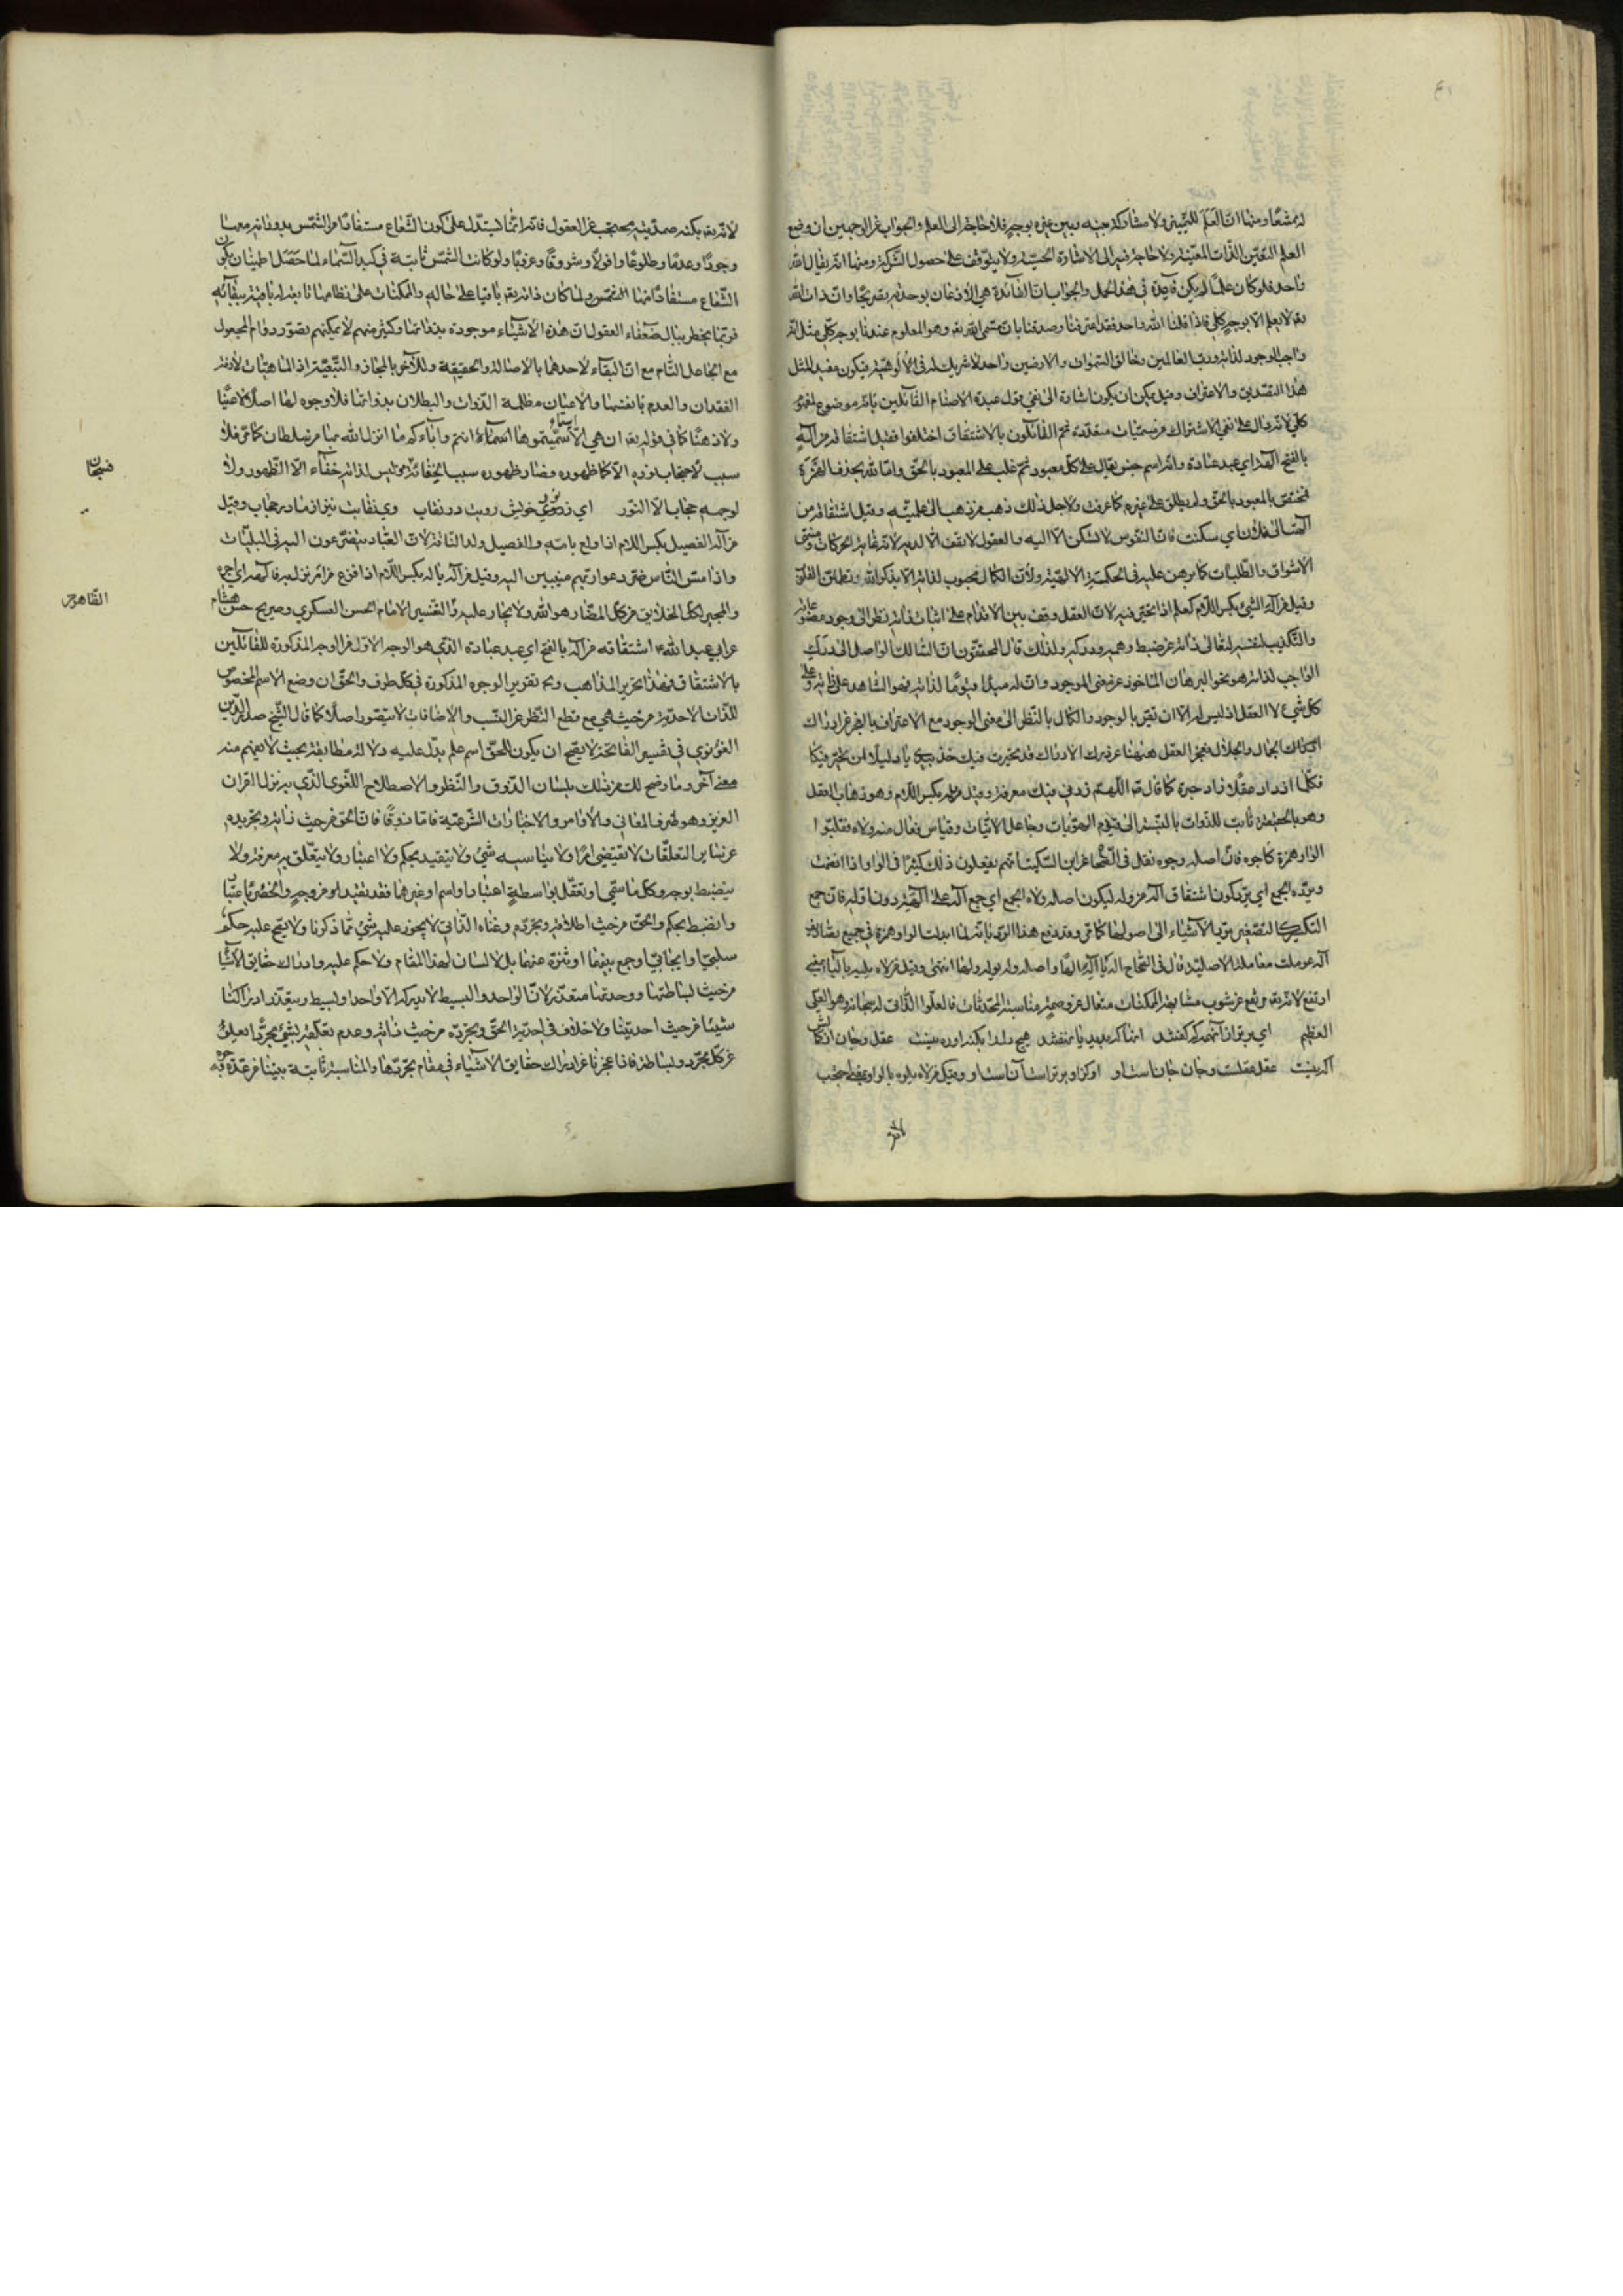 له مشعًا ومنها ان العلم للتميز ولا مشاركة بينه وبين غيره بوجه فلا حاجة الى العلم والجواب عن الوجهين ان وضع
العلم لتعيين الذات المعينة ولا حاجة فيه الى الاشارة الحسية ولا يتوقف على حصول الشركة ومنها انه يقال الله
واحد فلو كان علمًا لم يكن فايدة في هذا الحمل والجواب ان الفائدة هي الاذعان بوحدته تصريحًا وان ذات الله
لا يعلم الا بوجه كلي فاذا قلنا الله واحد فقد اعترفنا وصدقنا بان مسمى الله وهو المعلوم عندنا بوجه كلي مثل انه
واجب الوجود لذاته ورب العالمين وخالق السموات والارضين واحد لا شريك له في الالوهية فيكون مفيد المثل
هذا التصديق والاعتراف وقيل يمكن ان يكون اشارة الى نفي قول عبدة الاصنام القائلين بانه موضوع لمفهوم
كلي لانه دال على نفي الاشتراك من مسميات متعددة ثم القائلون بالاشتقاق اختلفوا فقيل اشتقاقه من اله
بالفتح الهة اي عبد عبادة وانه اسم جنس يقال على كل معبود ثم غلب على المعبود بالحق واما الله بحذف الهمزة
فمختص بالمعبود بالحق ولم يطلق على غيره كما عرفت ولاجل ذلك ذهب من ذهب الى علميته وقيل اشتقاقه من
الهت الى فلان اي سكنت فان النفوس لا تسكن الا اليه والعقول لا تقف الا لديه لانه غاية الحركات ومنتهى
الاشواق والطلبات كما برهن عليه في الحكمة الالهية ولان الكمال محبوب لذاته الا بذكر الله تطمئن القلوب
وقيل من اله الشيء بكسر اللام كعلم اذا تحير فيه لان العقل وقف بين الاقدام على اثبات ذاته نظرا الى وجود مصنوعاته
والتكذيب لنفسه لتعالى ذاته عن ضبط وهمه ودركه ولذلك قال المحققون ان السالك الواصل الى درك
الواجب لذاته هو نحو البرهان الماخوذ عن معنى الموجود وان له مبدأ قيومًا لذاته فهو الشاهد على ذاته وعلى
كل شيء لا العقل اذ ليس له الا ان تقر بالوجود والكمال بالنظر الى معنى الوجود مع الاعتراف بالعجز عن ادراك
الجمال والجلال فعجز العقل ههنا عن درك الادراك قد تحيرت فيك خذ بيدي يا دليلا لمن تحير فيكا
فكلما ازداد عقلًا زاد حيرة كما قال اللهم زدني فيك معرفة وقيل من وله بكسر اللام وهو ذهاب العقل
وهو بالحقيقة ثابت للذوات بالنسبة الى قيوم الهويات وجاعل الانيات وقياس فعال منه ولاه فقلبوا
الواو همزة كما جوه فان اصله وجوه نقل في الصحاح عن ابن السكيت انهم يفعلون ذلك كثيرًا في الواو اذا انضمت
ويرده الجمع اي يرد كون اشتقاق اله من وله ليكون اصله ولاه الجمع اي جمع اله على الهة دون اولهة فان جمع
التكسير كالتصغير يرد الاشياء الى اصولها كما مر وقد يدفع هذا الرد بانه لما ابدلت الواو همزة في جميع تصاريف
اله عوملت معاملة الاصلية قال في الصحاح اله يأله الهًا واصله وله يوله ولهًا انتهى وقيل من لاه يليه بالياء بمعنى
ارتفع لانه ارتفع عن شوب مشابهة الممكنات متعال عن وصمة مناسبة المحدثات فالعلو الذاتي له سبحانه وهو العلي
العظيم اي برتر از آنهمه كه كفتند آنها كه پديد يا نهفتند هيچ دلدا بكنه او ره نيست عقل وجان از كمالش
آكه نيست عقل عقلست وجان جانست او آنكزو برتر است آنست او وقيل من لاه يلوه بالواو بمعنى احتجب
لانه
لانه بكنه صمديته محتجب عن العقول فانه انما يستدل على كون الشعاع مستفادًا من الشمس بدورانه معها
وجودًا وعدمًا وطلوعًا وافولًا وشروقًا وغروبًا ولو كانت الشمس ثابتة في كبد السماء لما حصل اطمينان بكون
الشعاع مستفادًا منها الشمس ولما كان ذاته باقيا على حاله والممكنات على نظامها تابعة له باقية ببقائه
فربما يخطر ببال ضعفاء العقول ان هذه الاشياء موجودة بذواتها وكثير منهم لا يمكنهم تصور دوام المجعول
مع الجاعل التام مع ان البقاء لاحدهما بالاصالة والحقيقة وللآخر بالمجاز والتبعية اذ الماهيات لازمة
الفقدان والعدم بانفسها والاعيان مظلمة الذوات والبطلان بذواتها فلا وجود لها اصلًا لا عينًا
ولا ذهنًا كما في قوله ان هي الا اسماء سميتموها انتم وآباؤكم ما انزل الله بها من سلطان كما مر فلا
سبب لاحتجاب نوره الا كمال ظهوره فصار ظهوره سبب الخفائه وليس لذاته خفاء الا الظهور ولا
لوجهه حجاب الا النور اي نوروي خويش رويت در نقاب وي نقابت نيز از مادر حجاب وقيل
من اله الفصيل بكسر اللام اذا ولع بامه والفصيل ولد الناقة لان العباد يتضرعون اليه في البليات
واذا مس الناس ضر دعوا ربهم منيبين اليه وقيل من اله ياله بكسر اللام اذا فزع من امر نزل به فاكهه اي اجره
والمجير لكل الخلايق من كل المضار هو الله ولا يجار عليه وفي التفسير الامام الحسن العسكري وصريح حسن هشام
عن ابي عبد الله اشتقاقه من اله بالفتح اي عبد عبادة الذي هو الوجه الاول من الاوجه المذكورة للقائلين
بالاشتقاق فهذا تحرير المذاهب وبه تقرير الوجوه المذكورة في كل طرف والحق ان وضع الاسم المخصوص
للذات الاحدية من حيث هي مع قطع النظر عن النسب والاضافات لا يتصور اصلًا كما قال الشيخ صدر الدين
القونوي في تفسير الفاتحة لا يصح ان يكون للحق اسم علم يدل عليه دلالة مطابقة بحيث لا يفهم منه
معنى آخر وما وضح لك من ذلك بلسان الذوق والنظر والاصطلاح اللغوي الذي به نزل القرآن
العزيز وهو ظرف المعاني والاوامر والاخبارات الشرعية فاما ذوقًا فان الحق من حيث ذاته وتجريده
عن ساير التعلقات لا يقتضي امرًا ولا يناسبه شيء ولا يتقيد بحكم ولا اعتبار ولا يتعلق به معرفة ولا
ينضبط بوجه وكل ما سمي او تعقل بواسطة اعتبار او اسم او غيرهما فقد تقيد من وجه وانحصر باعتبار
وانضبط بحكم والحق من حيث اطلاقه وتجرده وغناه الذاتي لا يجوز عليه شيء مما ذكرنا ولا يصح عليه حكم
سلبي او ايجابي او جمع بينهما او تنزه عنهما بل لا لسان لهذا المقام ولا حكم عليه وادراك حقايق الاشياء
من حيث بساطتها ووحدتها متعذر لان الواحد والبسيط لا يدركه الا واحد وبسيط ويتعذر ادراكنا
شيئًا من حيث احديتنا ولا خلاف في احدية الحق وتجرده من حيث ذاته وعدم تعلقه بشيء تجردًا يعلو
عن كل تجرد وبساطة فاذا عجزنا عن ادراك حقايق الاشياء في مقام تجردها والمناسبة ثابتة بيننا من عدة وجوه
فسبحان
القاهره